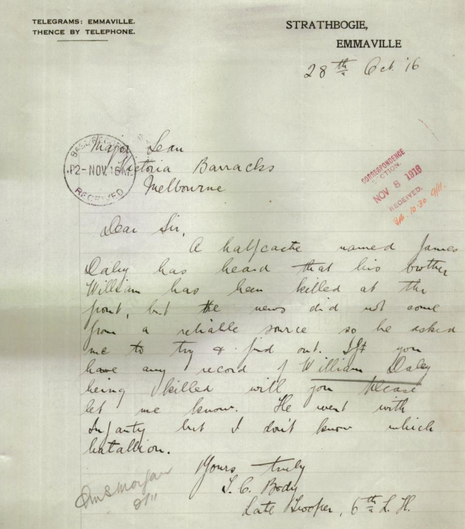 TELEGRAMS: EMMAVILLE.
THENCE BY TELEPHONE.
STRATHBOGIE,
EMMAVILLE
28th Oct '16
Major Lean
Victoria Barracks
Melbourne
P2-NOV.16
RECEIVED
CORRESPONDENCE
NOV 8 1916
RECEIVED.
Dear Sir,
A halfcaste named James
Daley has heard that his brother
William has been killed at the
front, but the news did not come
from a reliable source so he asked
me to try & find out. If you
have any record of William Daley
being killed will you please
let me know. He went with
Infantry but I don't know which
battallion.
Yours truly
T. C. Body
Late Trooper, 6th L. H.